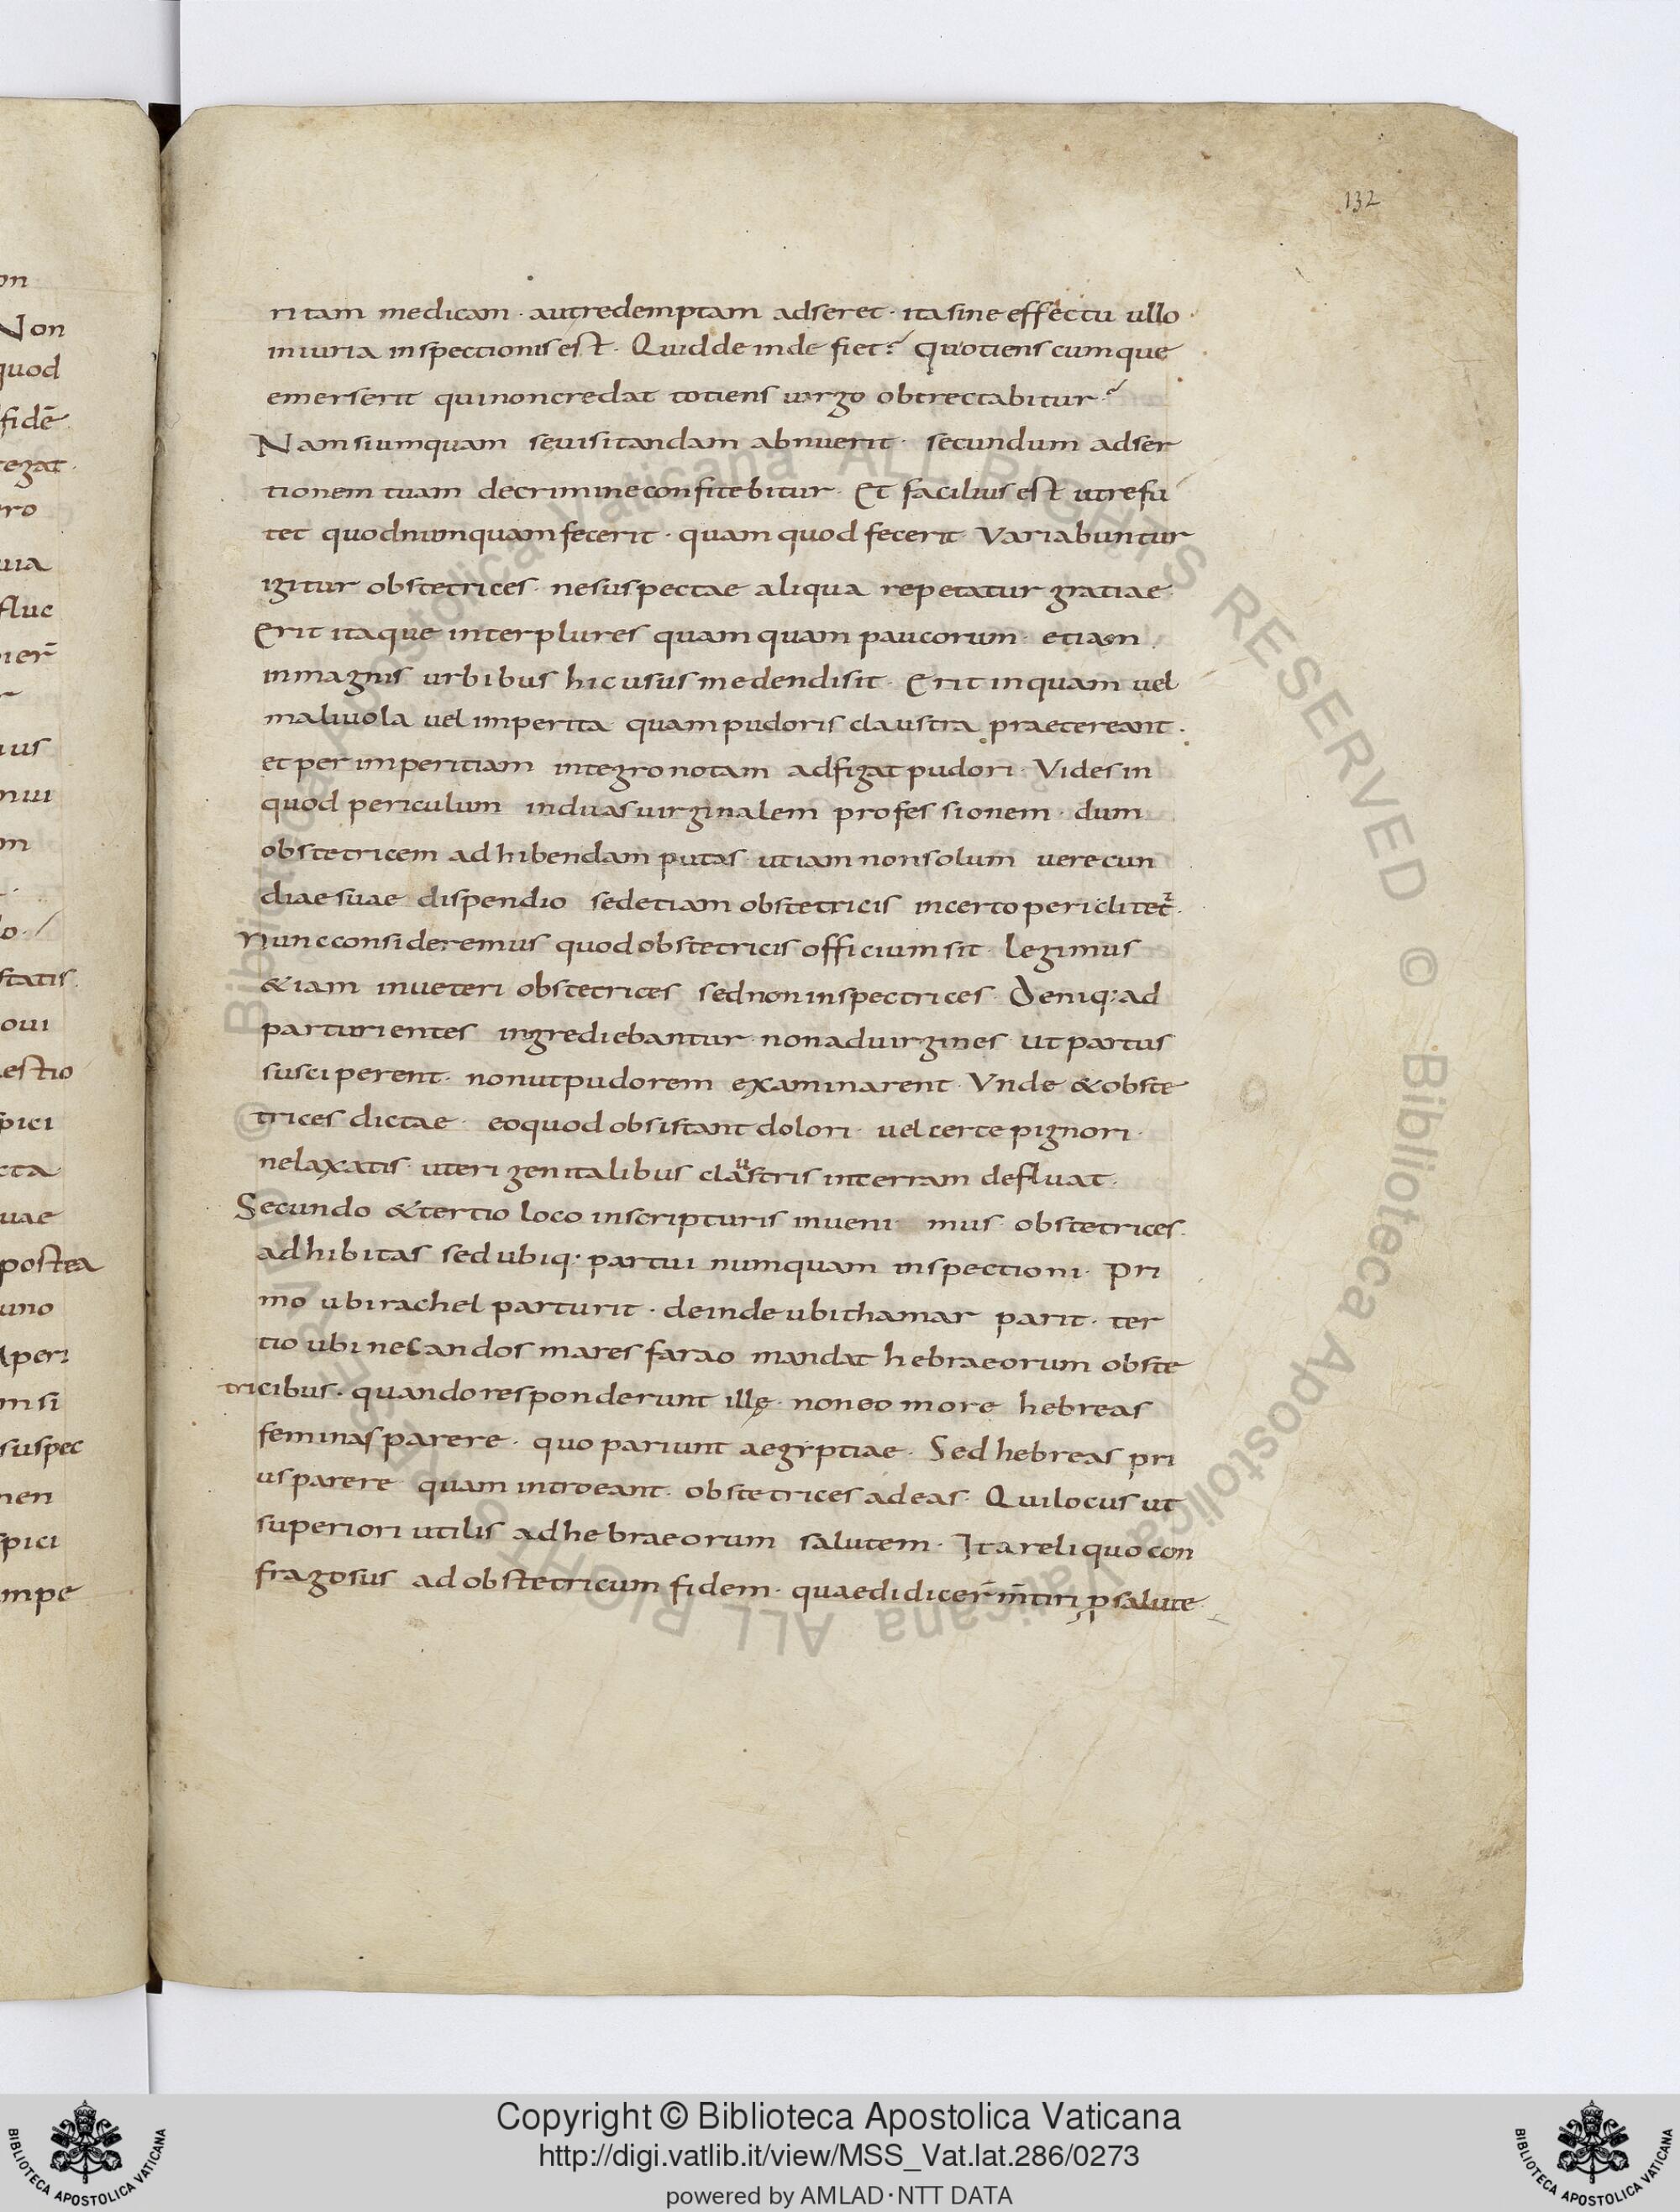 132
ritam medicam · aut redemptam adseret · ita sine effectu ullo ·
iniuria inspectionis est · Quid deinde fiet? Quotienscumque
emerserit qui non credat totiens uirgo obtrectabitur?
Nam si umquam se uisitandam abnuerit · secundum adser
tionem tuam de crimine confitebitur · Et facilius est ut refu
tet quod numquam fecerit · quam quod fecerit · Variabuntur
igitur obstetrices · ne suspectae aliqua repetatur gratiae ·
Erit itaque inter plures quamquam paucorum · etiam
in magnis urbibus hic usus medendi sit · Erit inquam uel
maliuola uel imperita quam pudoris claustra praetereant ·
et per imperitiam integro notam adfigat pudori · Vides in
quod periculum induas uirginalem professionem · dum
obstetricem adhibendam putas · ut iam non solum uerecun
diae suae dispendio sed etiam obstetricis incerto periclitet᷑ ·
Nunc consideremus quod obstetricis officium sit · Legimus
&iam in ueteri obstetrices sed non inspectrices · Deniq: ad
parturientes ingrediebantur · non ad uirgines · ut partus
susciperent · non ut pudorem examinarent · Vnde & obste
trices dictae · eo quod obsistant dolori · uel certe pignori ·
ne laxatis · uteri genitalibus claustris in terram defluat ·
Secundo & tertio loco in scripturis inueni mus · obstetrices ·
adhibitas sed ubiq· partui numquam inspectioni · Pri
mo ubi rachel parturit · deinde ubi thamar parit · ter
tio ubi necandos mares farao mandat hebraeorum obste
tricibus · quando responderunt illę · non eo more hebreas
feminas parere · quo pariunt aegyptiae · Sed hebreas pri
us parere quam introeant · obstetrices ad eas · Qui locus ut
superiori utilis ad hebraeorum salutem · Ita reliquo con
fragosus ad obstetricum fidem · quae didicer̄ m̄tiri p salute ·
on
Non
quod
fidē
tegat ·
ro
uia
fluc
ier̄
us
nui
m
lo ·
statis
oui
estio
pici
cta
uae
postea
uno
Aperi
m si
suspec
nen
spici
mpe
© Biblioteca Apostolica Vaticana ALL RIGHTS RESERVED © Biblioteca Apostolica Vaticana ALL RIGHTS RESERVED
Copyright © Biblioteca Apostolica Vaticana
http://digi.vatlib.it/view/MSS_Vat.lat.286/0273
powered by AMLAD·NTT DATA
BIBLIOTECA APOSTOLICA VATICANA
BIBLIOTECA APOSTOLICA VATICANA